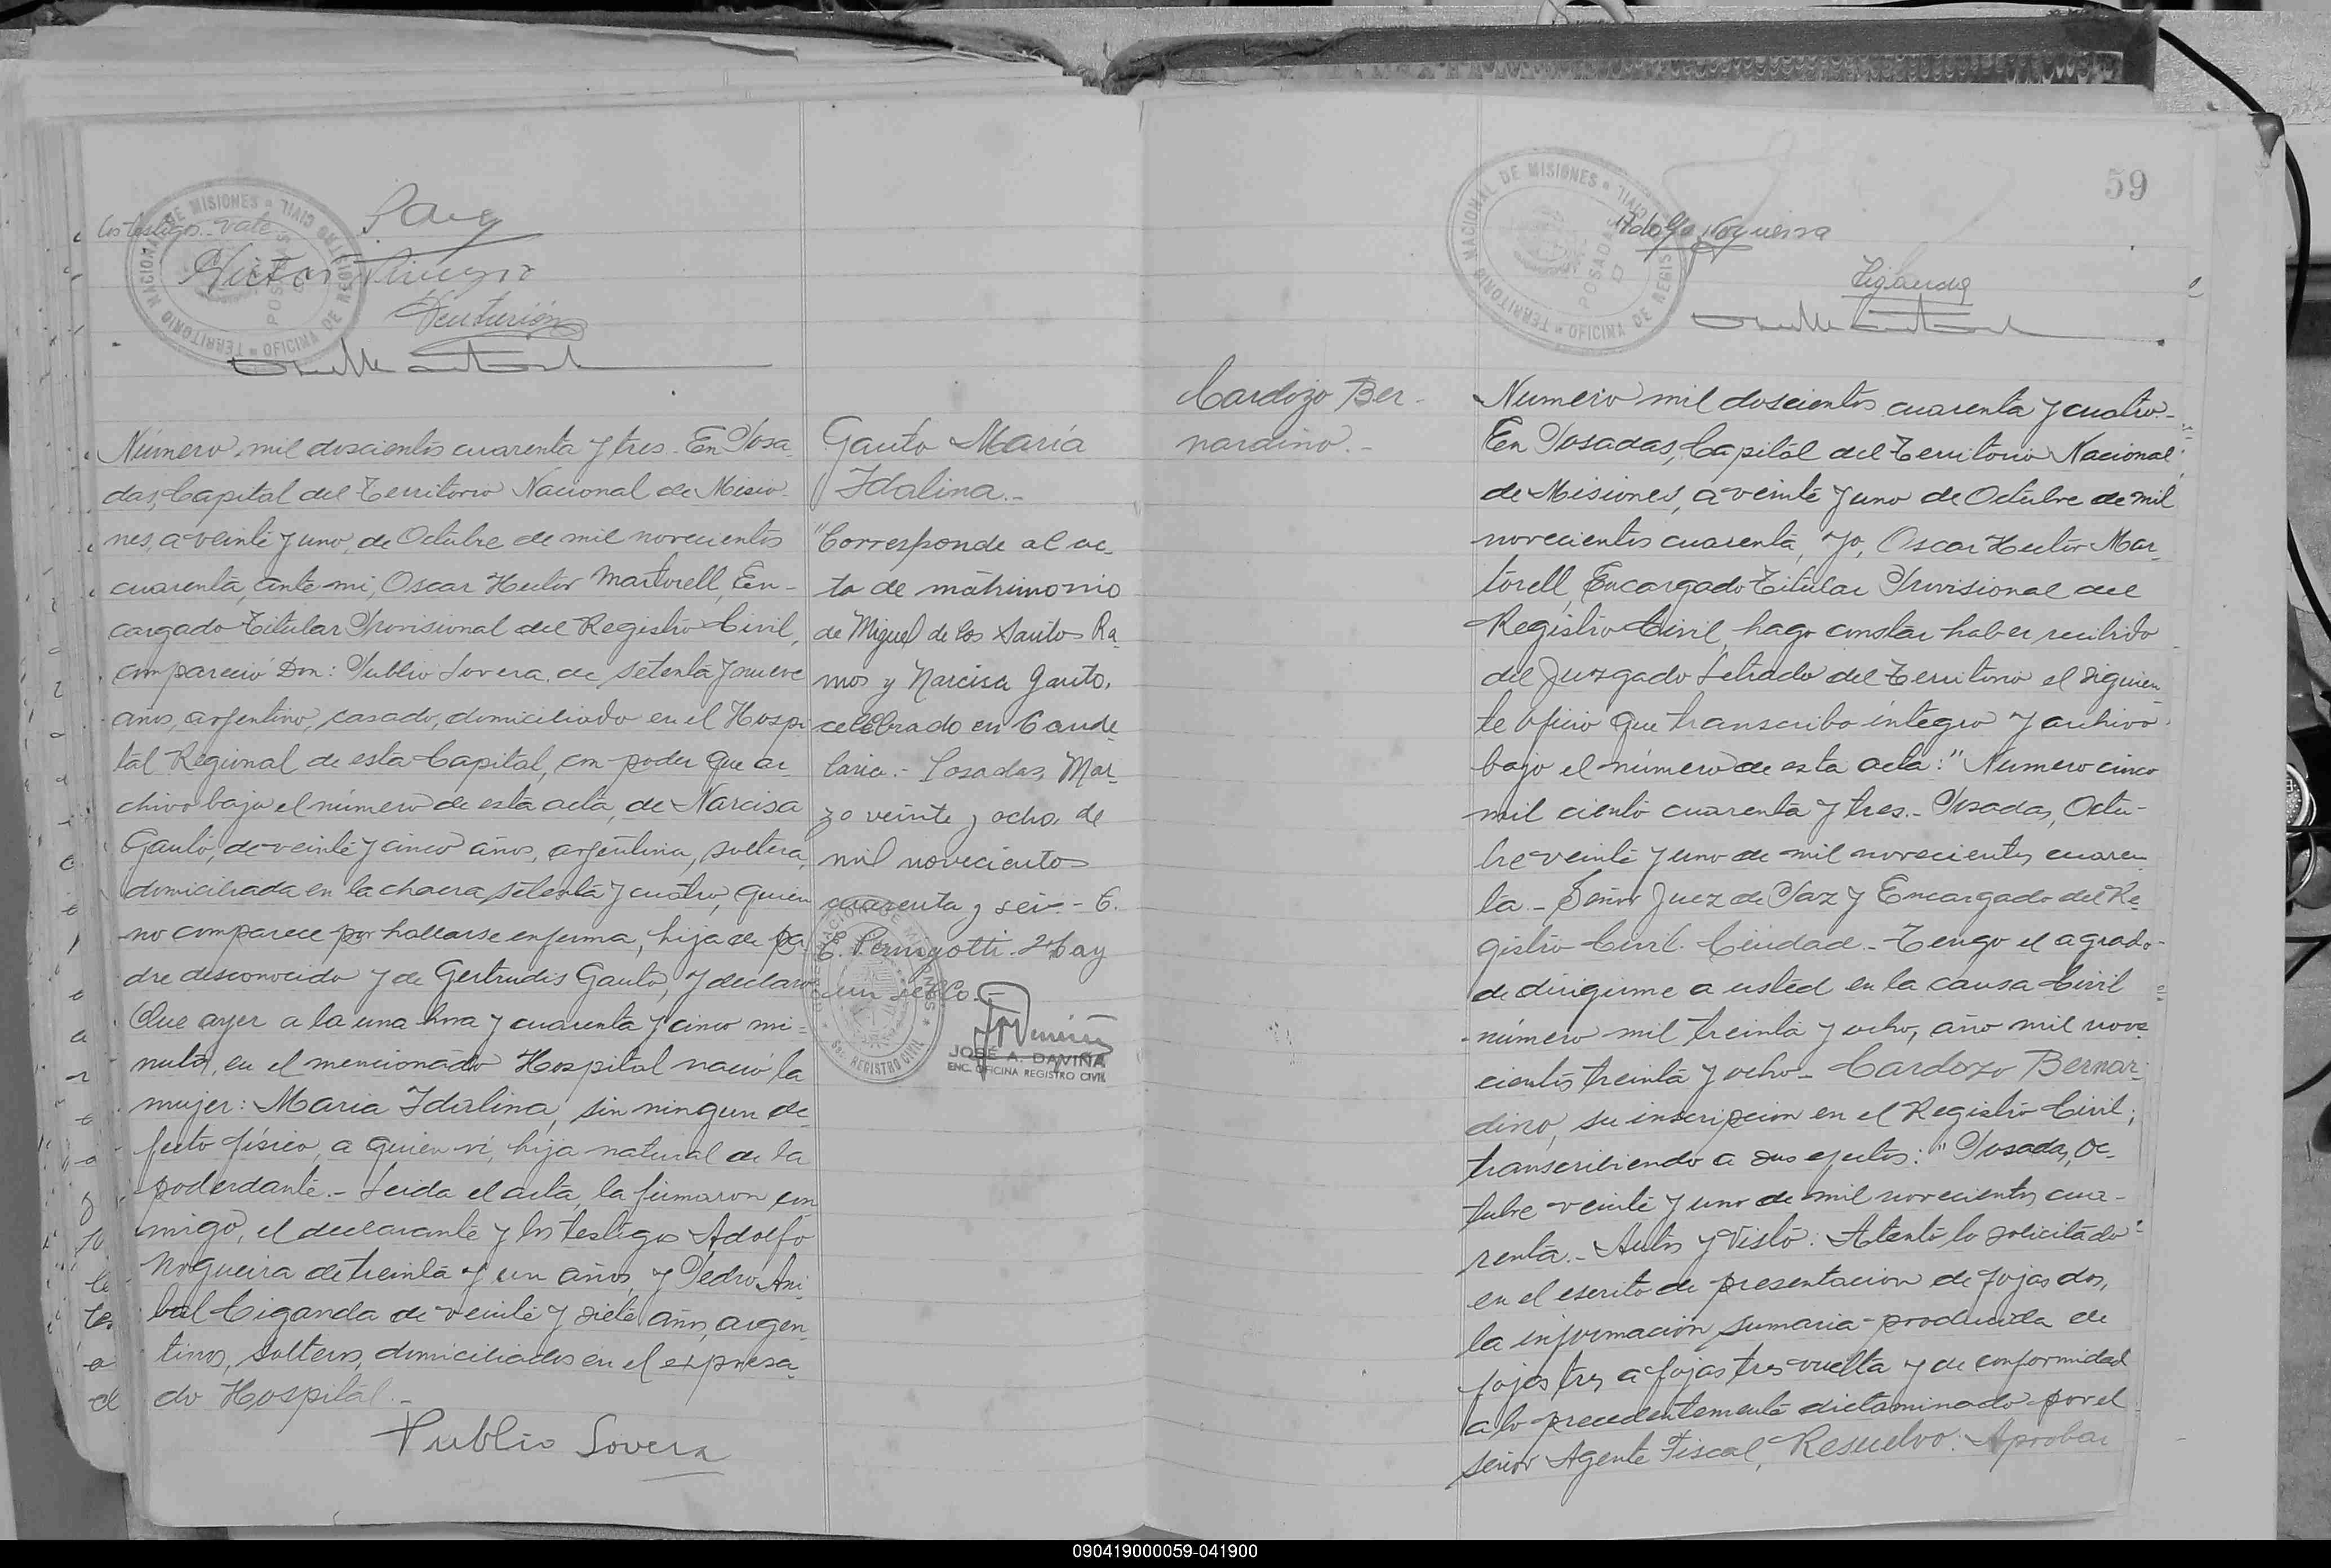 los testigos vale
TERRITORIO NACIONAL DE MISIONES
OFICINA DE REGISTRO CIVIL
POSADAS
Número mil doscientos cuarenta y tres. En Posa
das, Capital del Territorio Nacional de Misio
nes, a veinte y uno de Octubre de mil novecientos
cuarenta, ante mi, Oscar Hector Martorell, En-
cargado Titular Provisional del Registro Civil,
compareció Don: Publio Lovera, de setenta y nueve
años, argentino, casado, domiciliado en el Hospi
tal Regional de esta Capital, con poder que ar
chivo bajo el número de esta acta, de Narcisa
Gauto, de veinte y cinco años, argentina, soltera,
domiciliada en la chacra setenta y cuatro, quien
no comparece por hallarse enferma, hija de pa
dre desconocido y de Gertrudis Gauto, y declaro
Que ayer a la una hora y cuarenta y cinco mi=
nutos, en el mencionado Hospital nació la
mujer: Maria Idalina, sin ningun de
fecto físico, a quien vi, hija natural de la
poderdante.- Leida el acta, la firmaron con
migo, el declarante y los testigos Adolfo
Nogueira de treinta y un años, y Pedro Ani
bal Ciganda de veinte y siete años, argen
tinos, solteros, domiciliados en el expresa
do Hospital.-
Publio Lovera
Gauto María
Idalina.-
"Corresponde al ac
ta de matrimonio
de Miguel de los Santos Ra
mos y Narcisa Gauto,
celebrado en Cande
laria.- Posadas, Mar
zo veinte y ocho de
mil novecientos
cuarenta y seis.- E.
E. Pernigotti. Hay
un sello.-
JOSÉ A. DAVIÑA
ENC. OFICINA REGISTRO CIVIL
59
TERRITORIO NACIONAL DE MISIONES
OFICINA DE REGISTRO CIVIL
POSADAS
Adolfo Nogueira
Ciganda
Cardozo Ber-
nardino.-
Numero mil doscientos cuarenta y cuatro.-
En Posadas, Capital del Territorio Nacional
de Misiones, a veinte y uno de Octubre de mil
novecientos cuarenta, Yo, Oscar Hector Mar
torell, Encargado Titular Provisional del
Registro Civil, hago constar haber recibido
del Juzgado Letrado del Territorio el siguien
te oficio que transcribo íntegro y archivo
bajo el número de esta acta: "Numero cinco
mil ciento cuarenta y tres.- Posadas, Octu-
bre veinte y uno de mil novecientos cuaren
ta.- Señor Juez de Paz y Encargado del Re
gistro Civil. Ciudad.- Tengo el agrado
de dirigirme a usted en la causa Civil
número mil treinta y ocho, año mil nove
cientos treinta y ocho- Cardozo Bernar
dino, su inscripcion en el Registro Civil;
transcribiendo a sus efectos: "Posadas, Oc
tubre veinte y uno de mil novecientos cua-
renta.- Autos y Visto: Atento lo solicitado
en el escrito de presentacion de fojas dos,
la informacion sumaria producida de
fojas tres a fojas tres vuelta y de conformidad
a lo precedentemente dictaminado por el
señor Agente Fiscal, Resuelvo: Aprobar
090419000059-041900